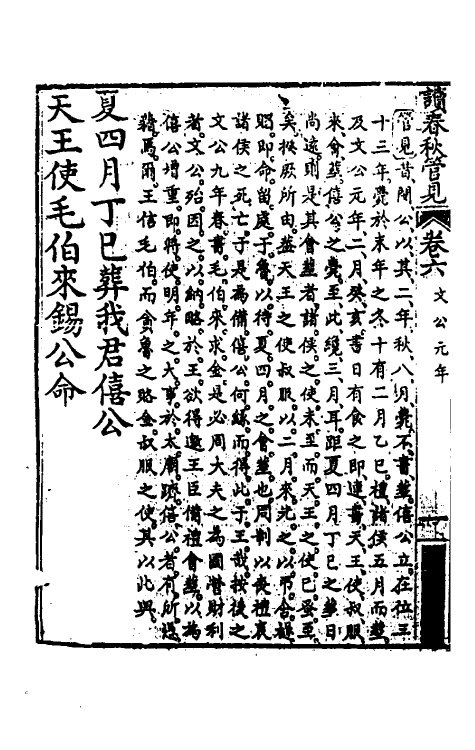 讀春秋管見 卷六 文公元年
管見昔閔公以其二年秋八月薨不書葬僖公立在位三
十三年薨於末年之冬十有二月乙巳禮諸侯五月而葬
及文公元年二月癸亥書日有食之即連書天王使叔服
來會葬僖公之薨至此纔三月耳距夏四月丁巳之葬日
尚遠則是其會葬者諸侯之使未至而天王之使已至
矣揆厥所由葢天王之使叔服以二月來先之以弔含襚
賵即命留處于魯以待夏四月之會葬也周制以喪禮哀
諸侯之死亡于是為備僖公何緣而得此于王哉按後之
文公九年春書毛伯來求金是必周大夫之為國嗇財利
者文公殆因之以納賂於王欲得邀王臣備禮會葬以為
僖公增重即將使明年之大事於太廟躋僖公者有所
爾王信毛伯而貪魯之賂金叔服之使其以此與
夏四月丁巳葬我君僖公
天王使毛伯來錫公命